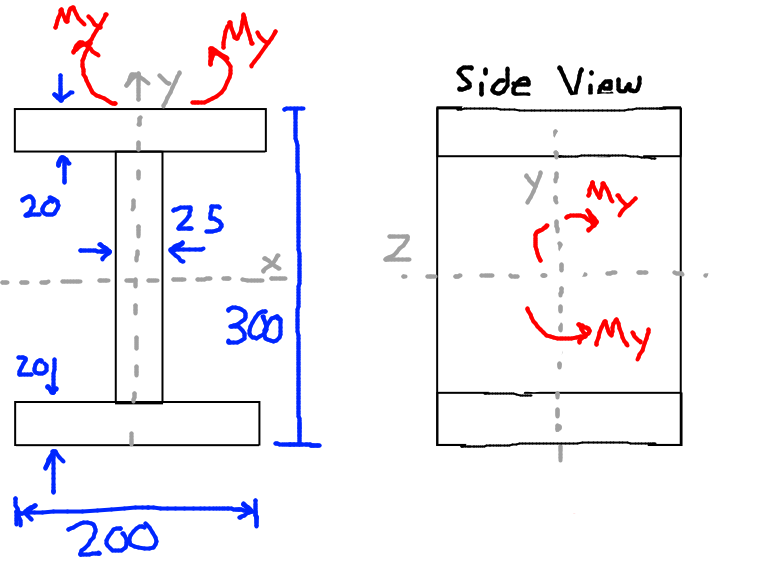 My
My
y
20
25
x
300
20
200
Side View
y
My
Z
My